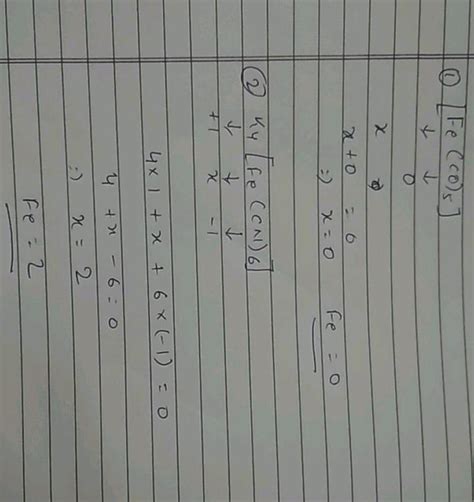 ① [Fe(CO)5]
↓ ↓
x 0
x+0 = 0
∴) x = 0 Fe = 0
② K4[Fe(CN)6]
↓ ↓ ↓
+1 x -1
4×1 + x + 6×(-1) = 0
4 + x - 6 = 0
∴) x = 2
Fe = 2